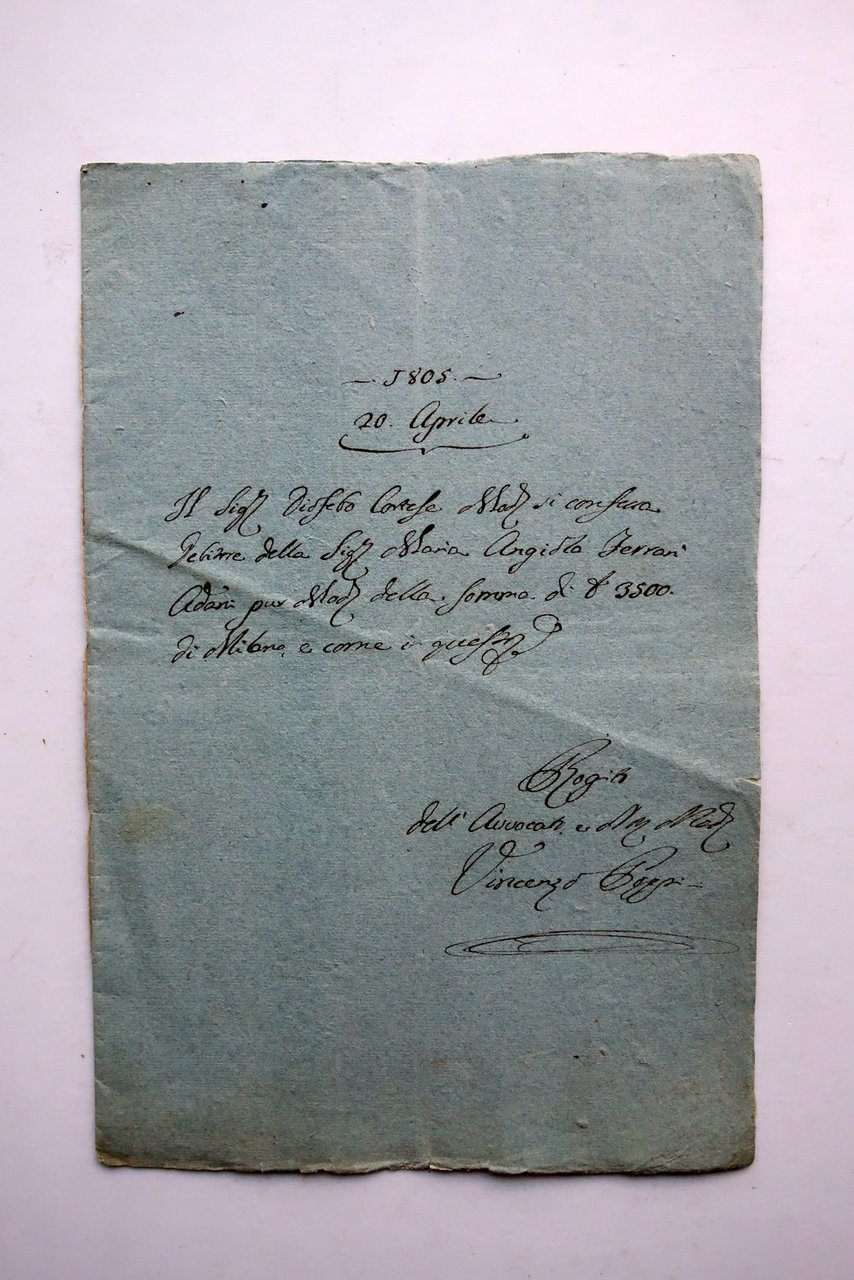 — 1805. —
20. Aprile
Il Sigr Diofebo Cortese Mod. si confessa
debitore della Sigra Maria Angiola Ferrari
Adani pur Mod. della somma di £ 3500.
di Milano, e come in questo
Rogito
dell' Avvocato, e Not. Mod.
Vincenzo